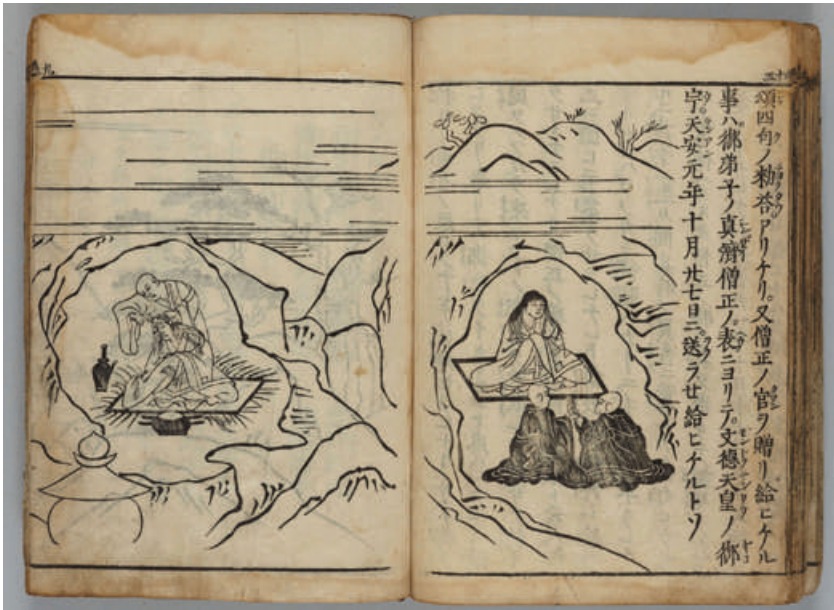 頌四句ノ勅答アリケリ。又僧正ノ官ヲ贈リ給ヒケル
事ハ御弟子ノ真濟僧正ノ。表ニヨリテ。文德天皇ノ御
宇。天安元年十月廿七日ニ。送ラせ給ヒケルトソ